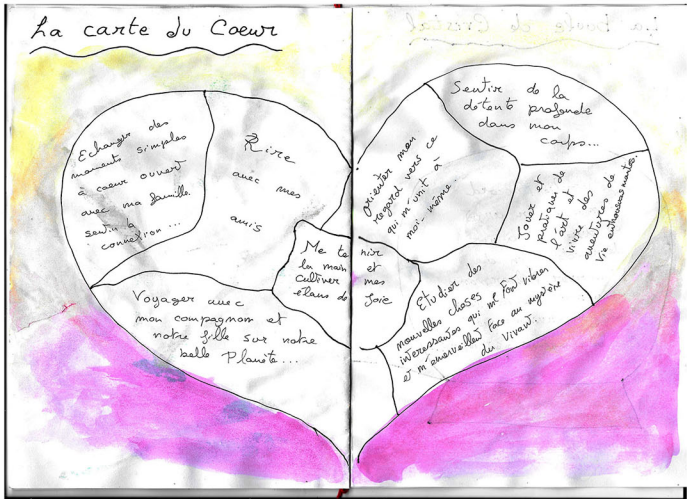 La carte du Coeur
La boule de Cristal
Echanger des
moments simples
à coeur ouvert
avec ma famille.
sentir la
connexion...
Rire
avec mes
amis
Me tenir
la main et
cultiver mes
élans de Joie
Voyager avec
mon compagnon et
notre fille sur notre
belle Planète...
orienter mon
regard vers ce
qui m'unit à
moi-même.
Sentir de la
détente profonde
dans mon
corps...
Jouer et
pratique de
l'art et
vivre des
aventures de
Vie enthousiasmantes.
Etudier des
nouvelles choses
interessantes qui me font vibrer
et m'émerveillent face au mystère
du Vivant.